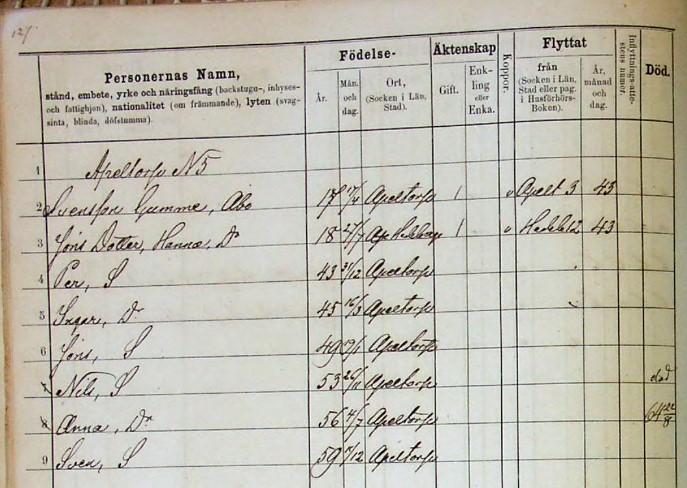 127
Personernas Namn,
stånd, embete, yrke och näringsfång (backstugu-, inhyses-
och fattighjon), nationalitet (om främmande), lyten (svag-
sinta, blinda, döfstumma).
Födelse-
År.
Mån.
och
dag.
Ort,
(Socken i Län,
Stad).
Äktenskap
Gift.
Enk-
ling
eller
Enka.
Koppor.
Flyttat
från
(Socken i Län,
Stad eller pag.
i Husförhörs-
Boken).
År,
månad
och
dag.
Inflyttnings-atte-
stens numer.
Död.
1 Apeltorp N 5
2 Svensson Gumme, Åbo Apeltorp 1 v Apelt 3 43
3 Jöns Dotter, Hanna, Dr 18 27/7 1 v 43
4 Per, S 43 31/12 Apeltorp
5 Ingar, Dr 45 16/3 Apeltorp
6 Jöns, S 49 Apeltorp
7 Nils, S 53 Apeltorp död
8 Anna, Dr 56 4/7 Apeltorp 64 22/8
9 Sven, S 59 7/12 Apeltorp